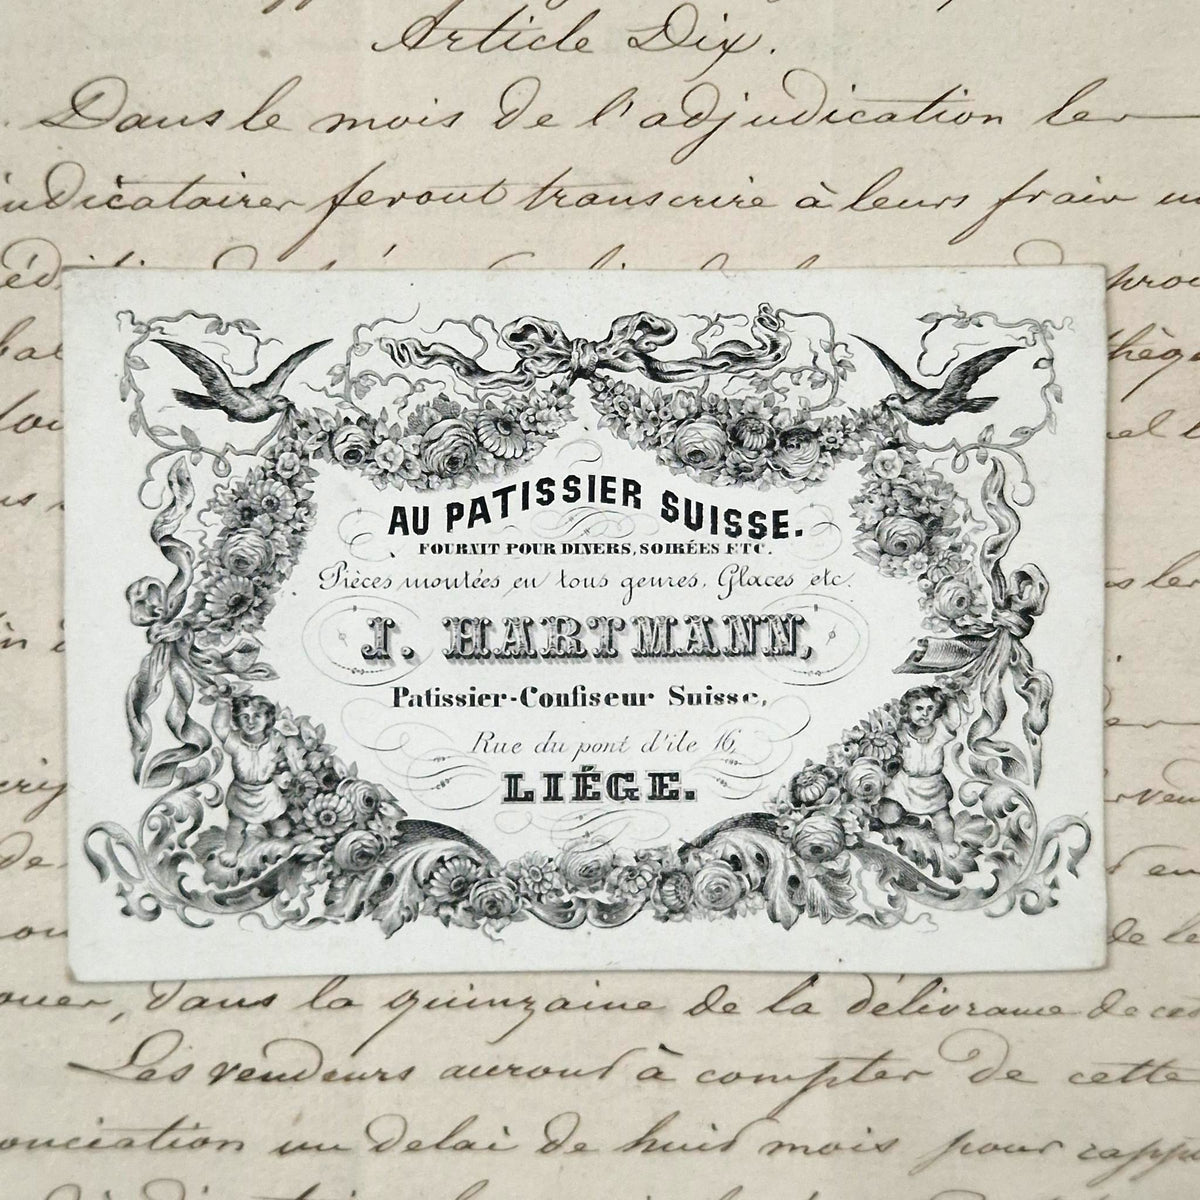 Article Dix.
Dans le mois de l'adjudication les
feront transcrire à leurs frais
AU PATISSIER SUISSE.
FOURNIT POUR DINERS, SOIRÉES ETC.
Pièces montées en tous genres, Glaces etc.
J. HARTMANN,
Patissier-Confiseur Suisse,
Rue du pont d'ile 16,
LIÉGE.
dans la quinzaine de la délivrance de
Les vendeurs auront à compter de cette
un delai de huit mois pour